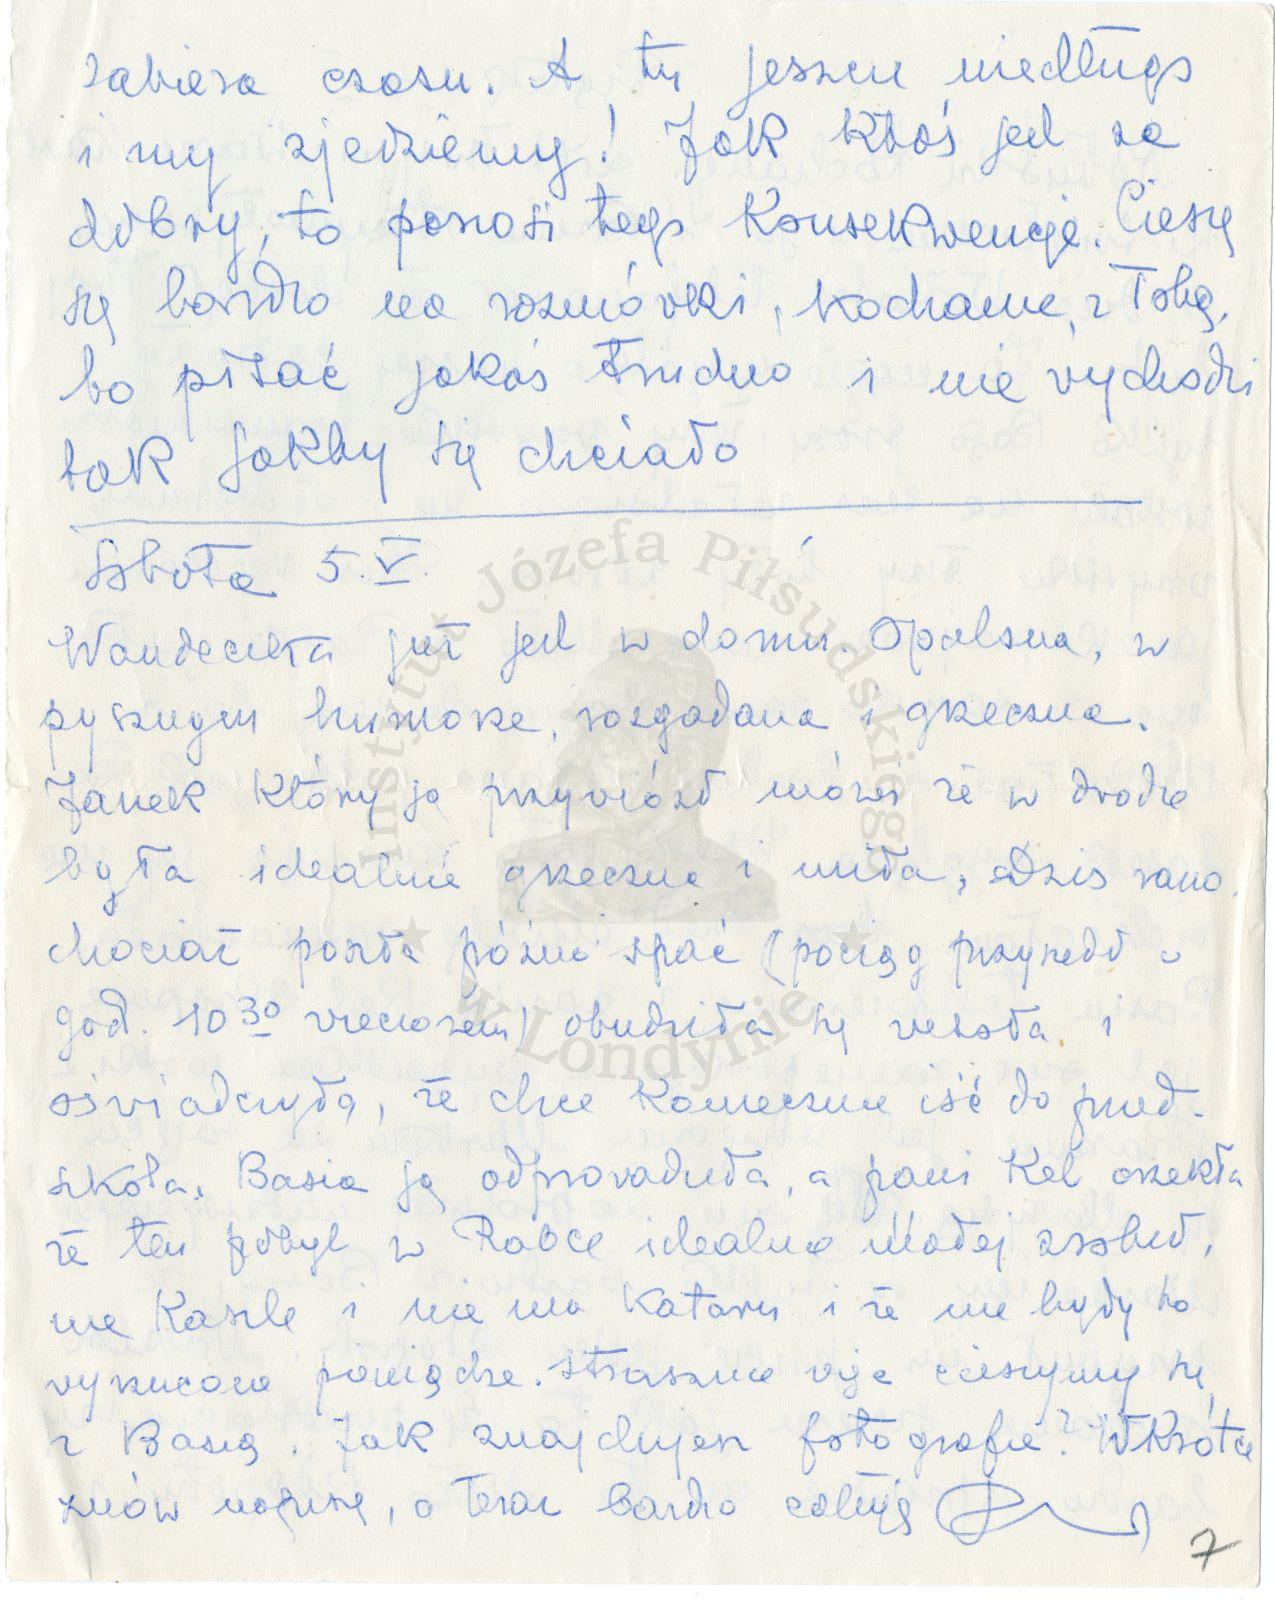 zabiera czasu. A tu jeszcze niedługo
i my zjedziemy! Jak ktoś jest za
dobry, to ponosi tego konsekwencje. Cieszę
się bardzo na rozmówki, kochanie, z Tobą,
bo pisać jakoś trudno i nie wychodzi
tak jakby się chciało
Sobota 5.V.
Wandeczka już jest w domu. Opalona, w
pysznym humorze, rozgadana i grzeczna.
Janek który ją przywiózł mówi że w drodze
była idealnie grzeczna i miła, Dziś rano
chociaż poszła późno spać (pociąg przyszedł o
god. 10 30 wieczorem) obudziła się wesoła i
oświadczyła, że chce koniecznie iść do przed-
szkola. Basia ją odprowadziła, a pani Kel orzekła
że ten pobyt w Rabce idealnie Małej zrobił,
nie kaszle i nie ma kataru i że nie były to
wyrzucone pieniądze. Strasznie więc cieszymy się
z Basią. Jak znajdujesz fotografie? Wkrótce
znów napiszę, a teraz bardzo całuję
7
Instytut Józefa Piłsudskiego
w Londynie